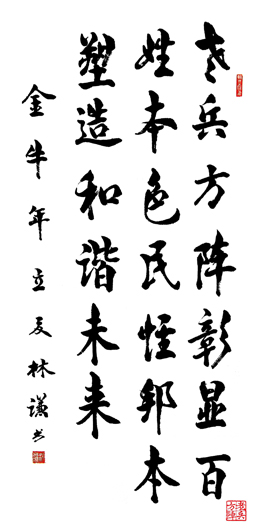 老兵方阵彰显百
姓本色民恒邦本
塑造和谐未来
金牛年立夏林谦书